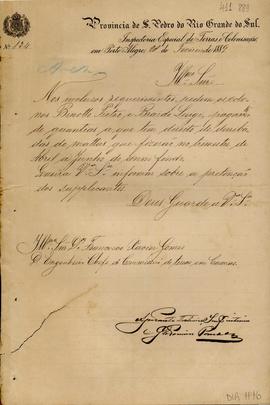 411 889
Provincia de S. Pedro do Rio Grande do Sul.
Inspectoria Especial de Terras e Colonisação,
em Porto Alegre, de Janeiro de 188
Nº 124
Illmo Snr.
Nos inclusos requerimentos, pedem os colo-
nos Binotto Pietro e Luigi, pagamen-
to da quantia a que tem direito de derruba-
das de mattas que no trimestre de
Abril a Junho do anno findo.
Queira Vª Sª informar sobre a pretenção
dos supplicantes.
Deus Guarde a Vª Sª
Illmo Snr Dr Francisco Xavier Gomes
D. Engenheiro Chefe da Commissão de Terras, em
DIA 1176